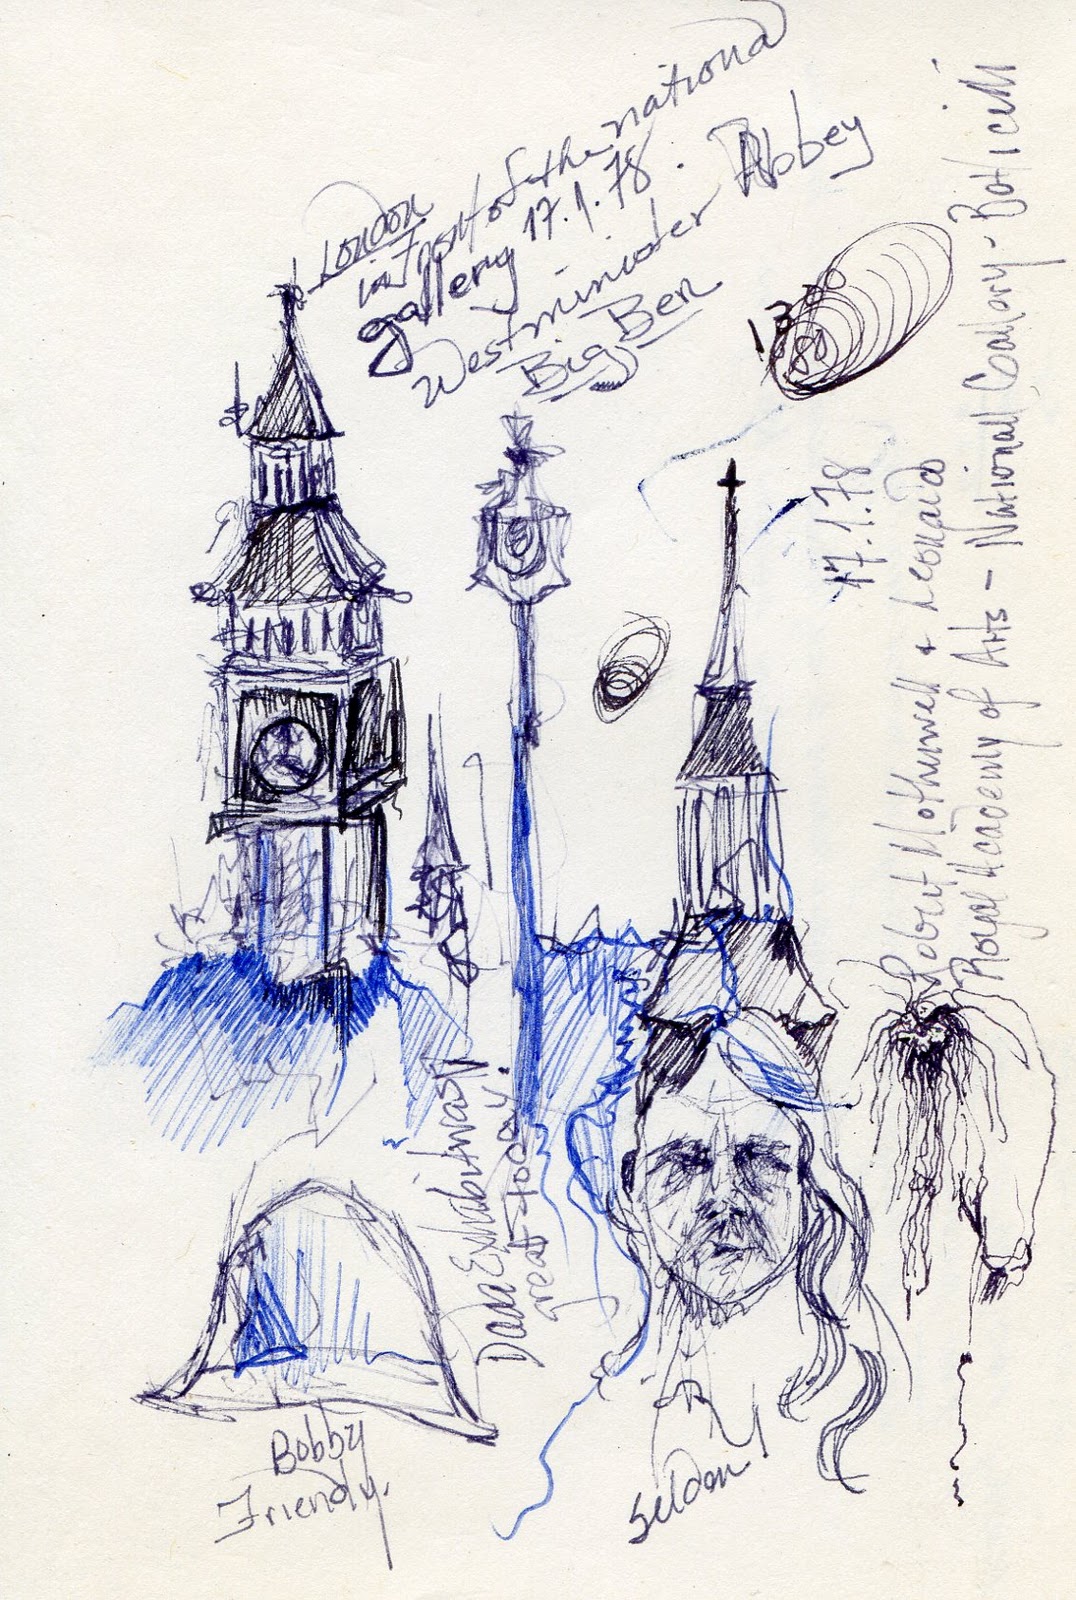 London
in Front of the nationa
gallery 17.1.78.
Westminister Abbey
Big Ben
17.1.78
Robert Motherwell + Leonardo
Royal Academy of Arts – National Gallery - Boticelli
Dada Exhabit was
great today.
Bobby
Friendly.
Seldon